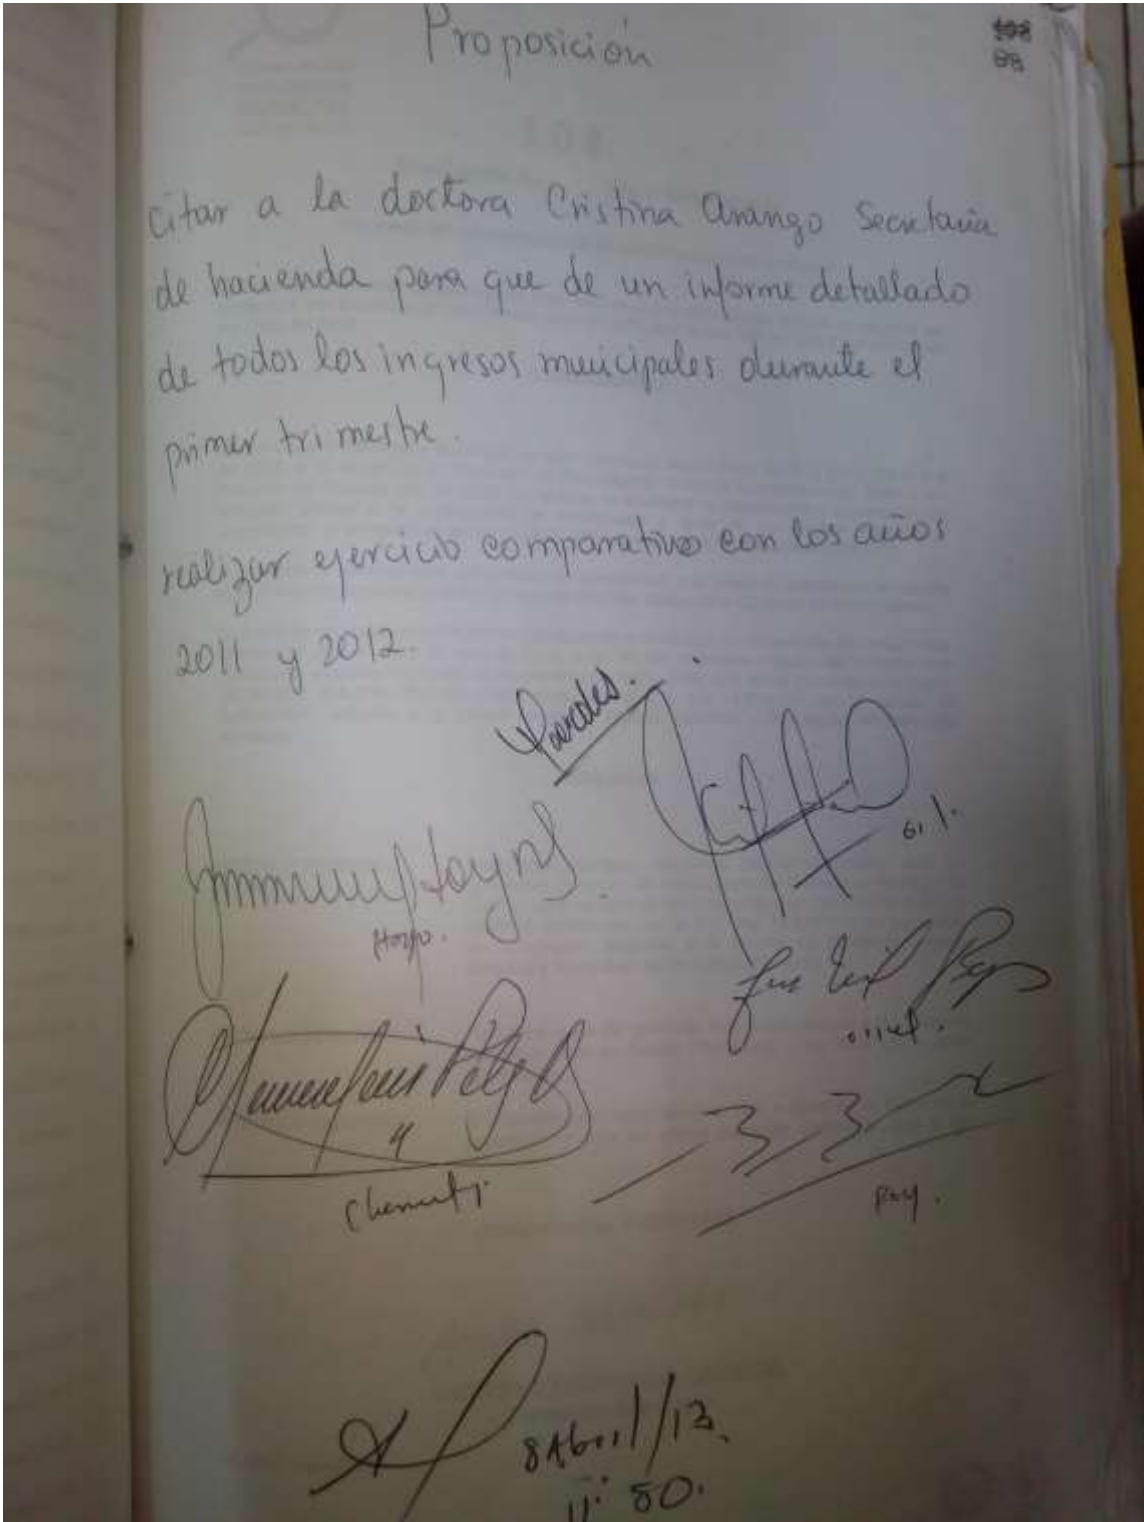 Proposición
108
88
Citar a la doctora Cristina Arango Secretaria
de hacienda para que de un informe detallado
de todos los ingresos municipales durante el
primer trimestre.
realizar ejercicio comparativo con los años
2011 y 2012.
Paredes.
Gil.
Hoyo.
Chemut
Roy.
8 Abril/13.
11: 50.